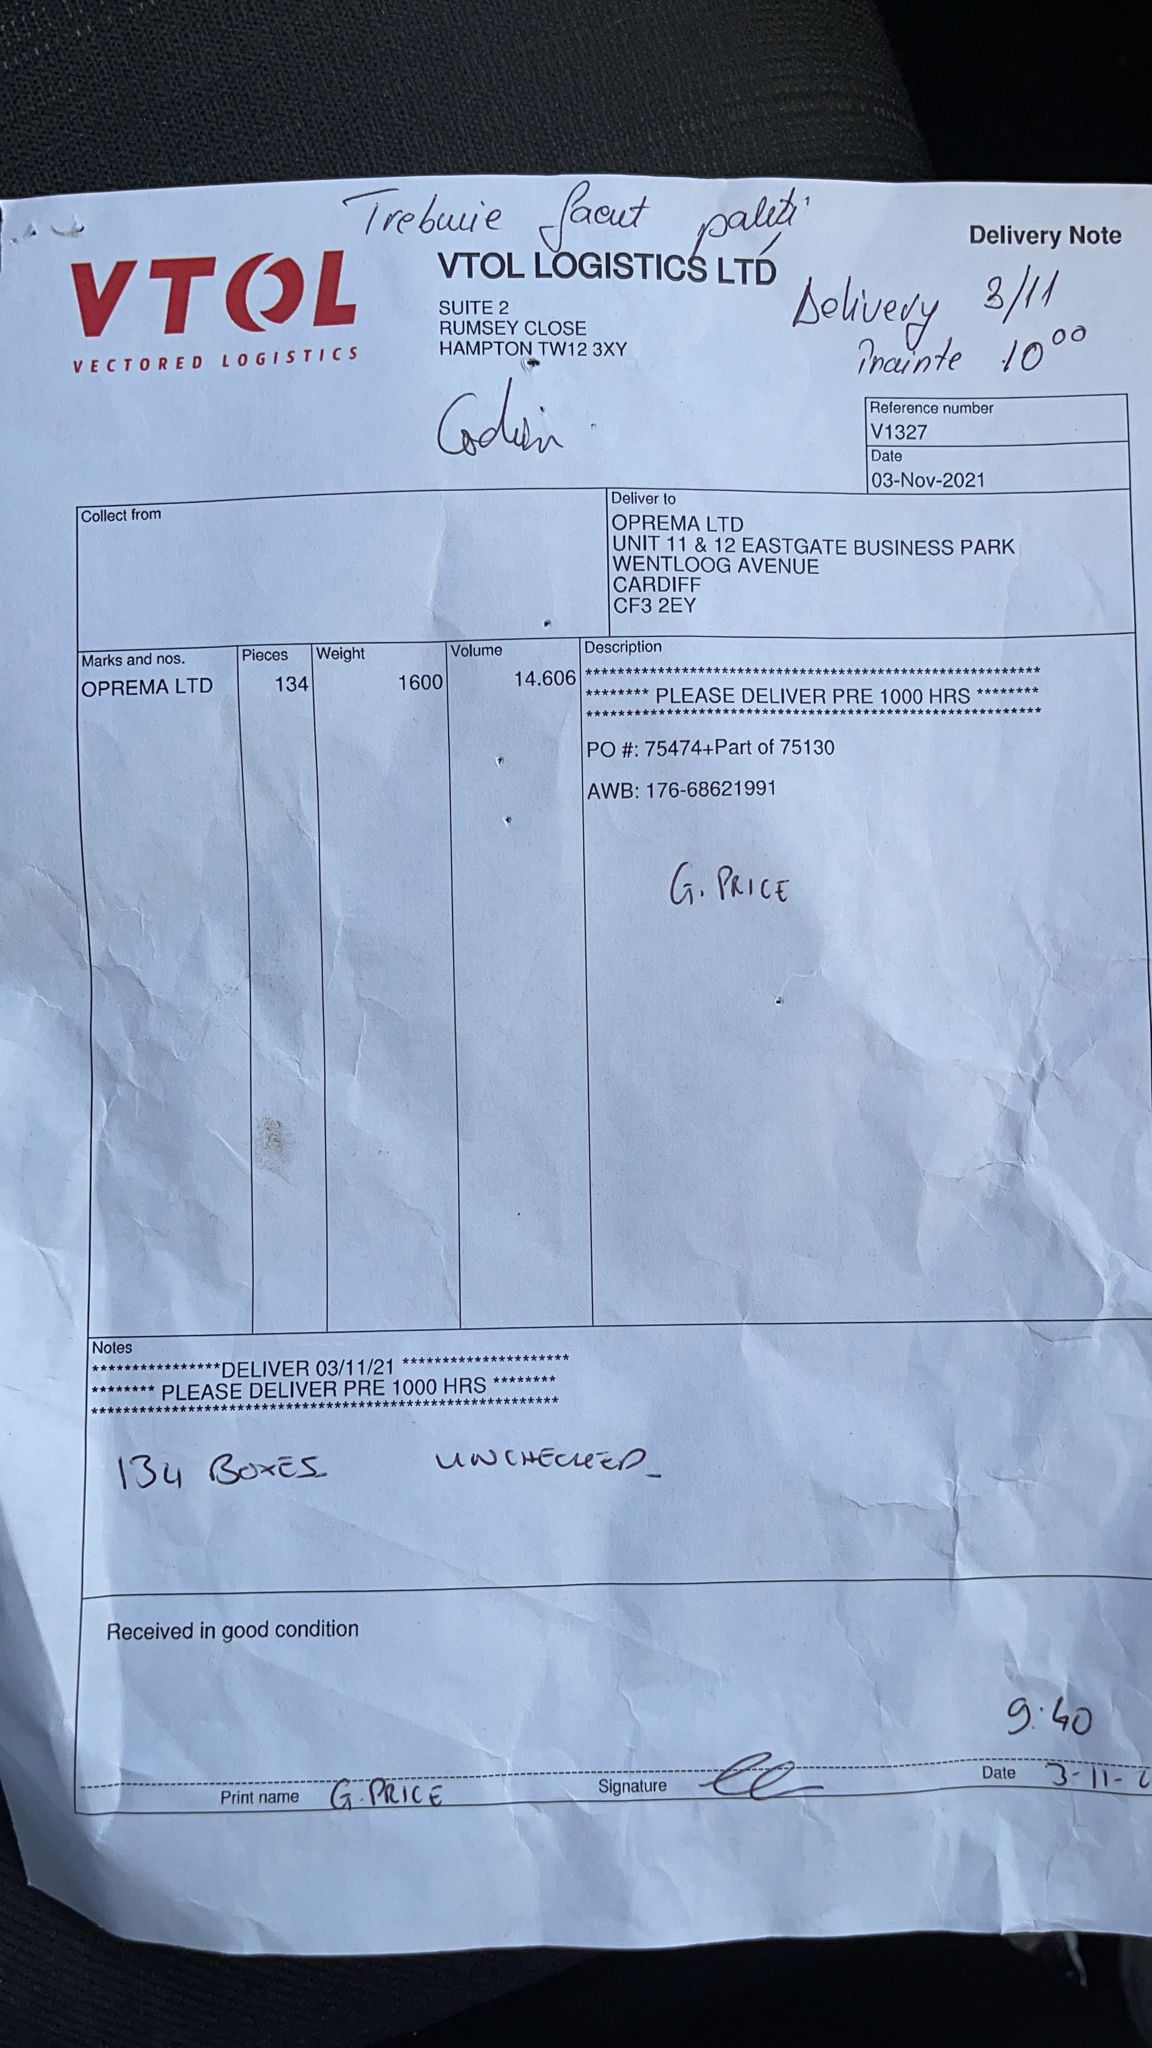 Trebuie facut paleti
Delivery Note
VTOL
VECTORED LOGISTICS
VTOL LOGISTICS LTD
SUITE 2
RUMSEY CLOSE
HAMPTON TW12 3XY
Delivery 3/11
înainte 10⁰⁰
Reference number
V1327
Date
03-Nov-2021
Collect from
Deliver to
OPREMA LTD
UNIT 11 & 12 EASTGATE BUSINESS PARK
WENTLOOG AVENUE
CARDIFF
CF3 2EY
Marks and nos. Pieces Weight Volume Description
OPREMA LTD 134 1600 14.606
******** PLEASE DELIVER PRE 1000 HRS ********
PO #: 75474+Part of 75130
AWB: 176-68621991
G. PRICE
Notes
****************DELIVER 03/11/21 *********************
******** PLEASE DELIVER PRE 1000 HRS ********
134 BOXES UNCHECKED
Received in good condition
9:40
Print name G. PRICE Signature Date 3-11-